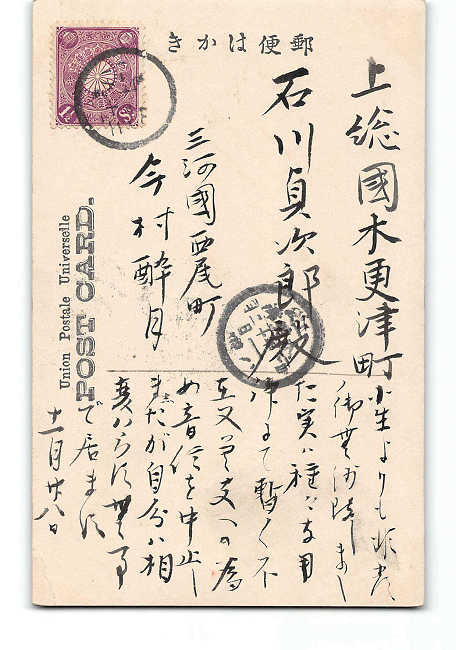 郵便はかき
上総國木更津町
石川貞次郎殿
三河國西尾町
今村酔月
Union Postale Universelle
POST CARD.
小生よりも
御無沙汰しまし
た実ハ種々る用
にて暫く不
在又 の為
め音信を中止し
ましたが自分ハ相
変はらす無事
で居ます
十一月廿八日